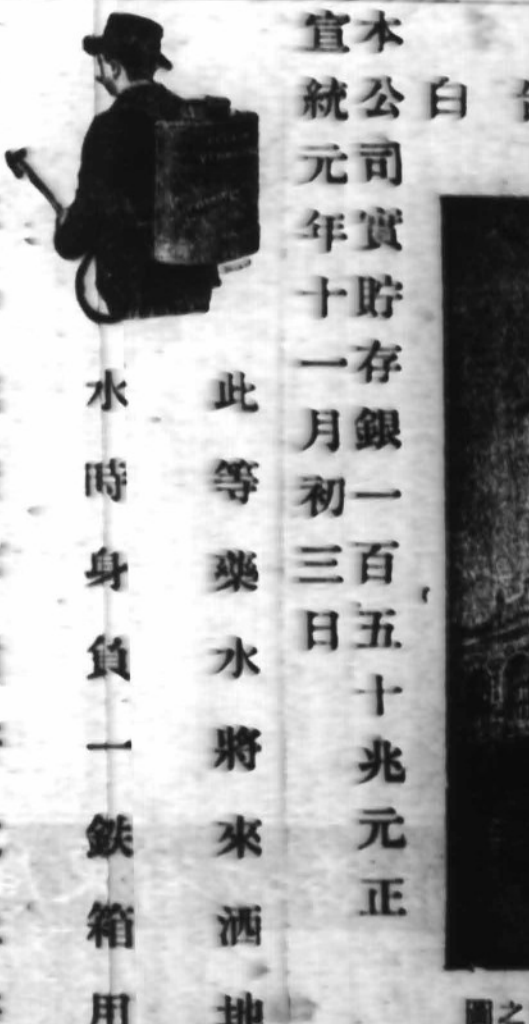 白
本公司實貯存銀一百五十兆元正
宣統元年十一月初三日
此等藥水將來洒地
水時身負一鉄箱用
之
圖